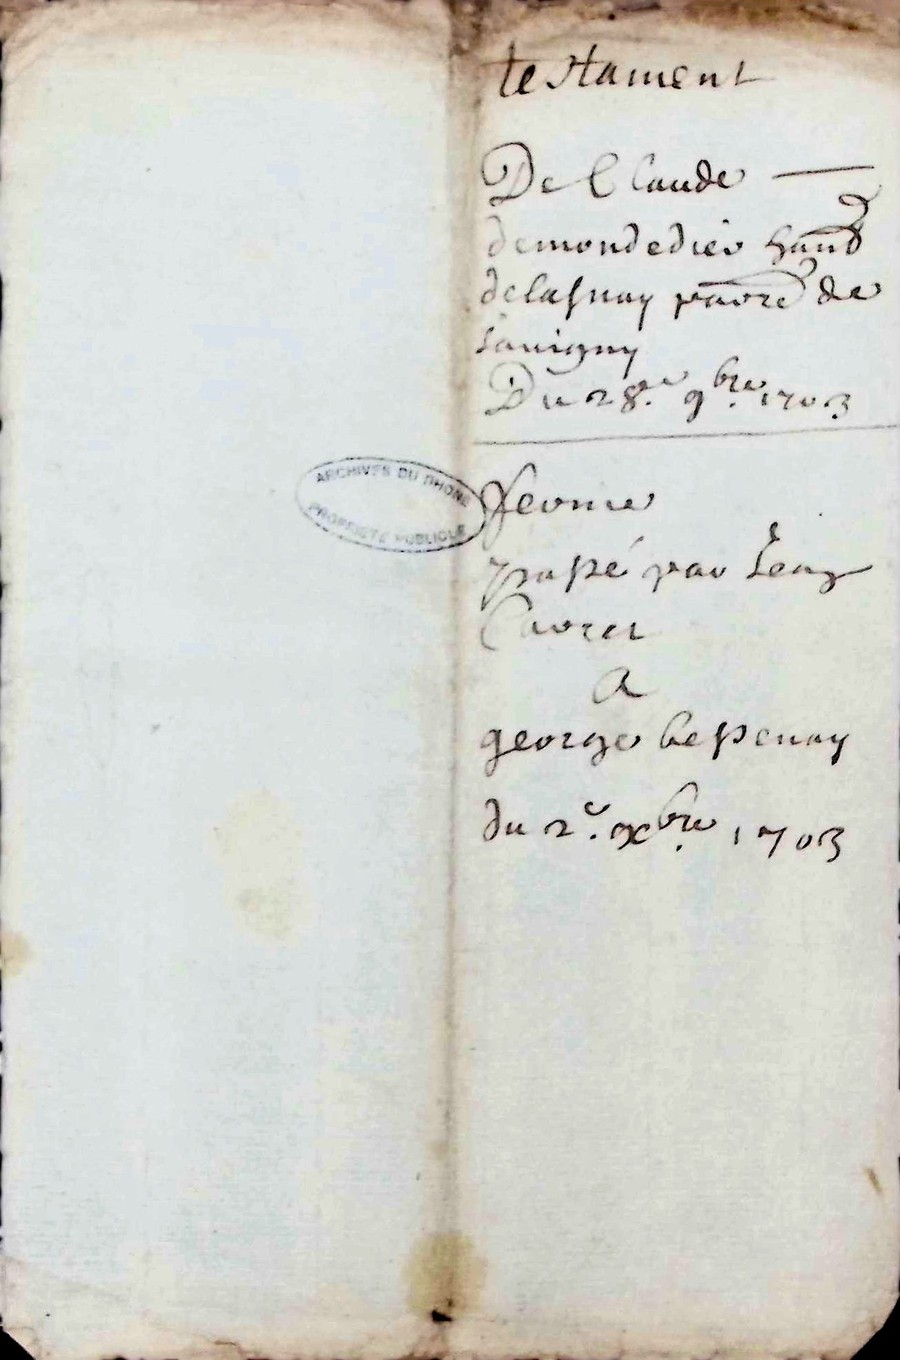 testament
De Claude
demondedieu hautd
delasnay parre de
savigny
Du 28.e 9bre. 1703
ARCHIVES DU RHONE
PROPRIÉTÉ PUBLIQUE
ferme
passé par
A
george bessenay
du 2e. xbre. 1703